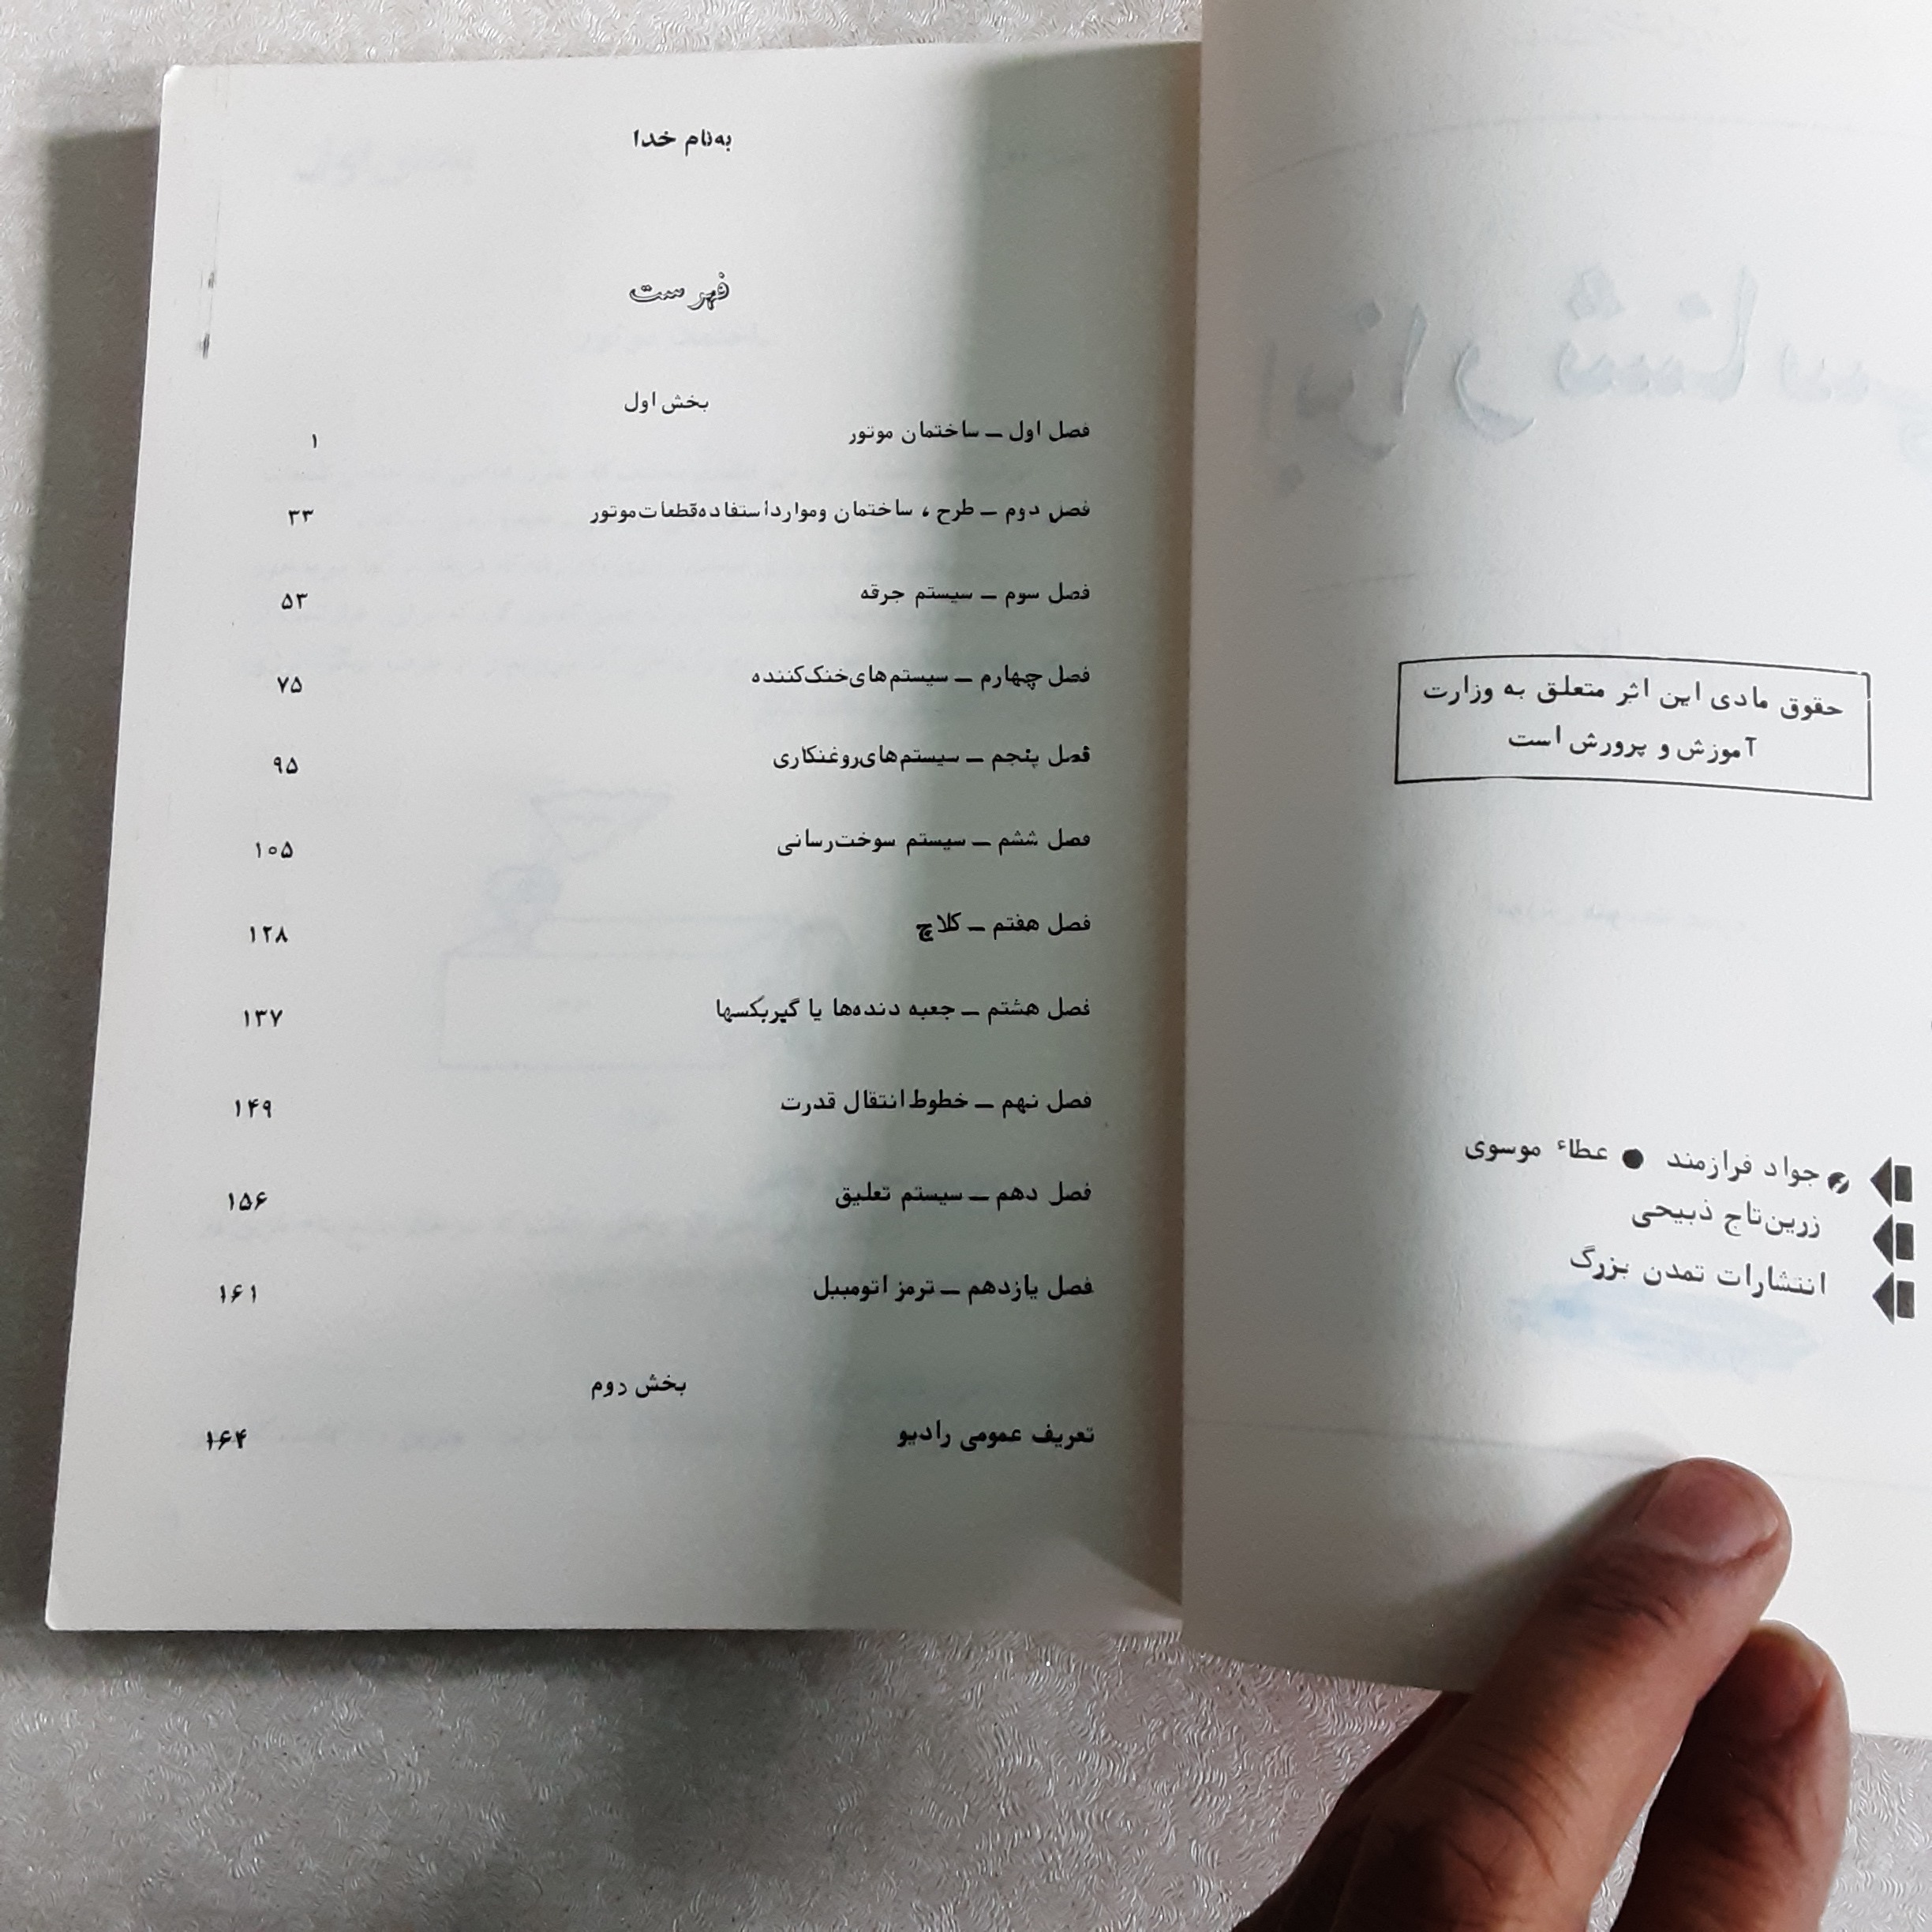 حقوق مادی این اثر متعلق به وزارت
آموزش و پرورش است
جواد فرازمند ● عطاء موسوی
زرین‌تاج ذبیحی
انتشارات تمدن بزرگ
به‌نام خدا
فهرست
بخش اول
فصل اول ــ ساختمان موتور ۱
فصل دوم ــ طرح ، ساختمان وموارداستفاده‌قطعات‌موتور ۳۳
فصل سوم ــ سیستم جرقه ۵۳
فصل چهارم ــ سیستم‌های‌خنک‌کننده ۷۵
فصل پنجم ــ سیستم‌های‌روغنکاری ۹۵
فصل ششم ــ سیستم سوخت‌رسانی ۱۰۵
فصل هفتم ــ کلاچ ۱۲۸
فصل هشتم ــ جعبه دنده‌ها یا گیربکسها ۱۳۷
فصل نهم ــ خطوط انتقال قدرت ۱۴۹
فصل دهم ــ سیستم تعلیق ۱۵۶
فصل یازدهم ــ ترمز اتومبیل ۱۶۱
بخش دوم
تعریف عمومی رادیو ۱۶۴